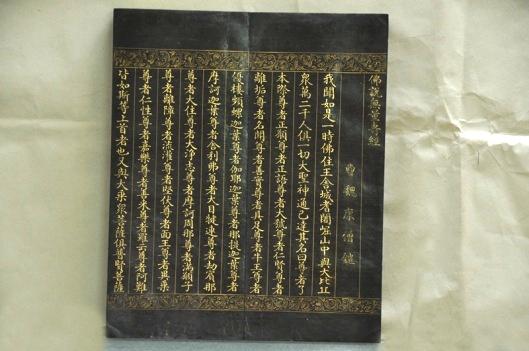 佛說無量壽經
曹魏康僧鎧
我聞如是一時佛住王舍城耆闍崛山中與大比丘
眾萬二千人俱一切大聖神通已達其名曰尊者了
本際尊者正願尊者正語尊者大號尊者仁賢尊者
離垢尊者名聞尊者善實尊者具足尊者牛王尊者
優樓頻螺迦葉尊者伽耶迦葉尊者那提迦葉尊者
摩訶迦葉尊者舍利弗尊者大目犍連尊者劫賓那
尊者大住尊者大淨志尊者摩訶周那尊者滿願子
尊者離障尊者流灌尊者堅伏尊者面王尊者異乘
尊者仁性尊者嘉樂尊者善來尊者羅云尊者阿難
皆如斯等上首者也又與大乘眾菩薩俱普賢菩薩